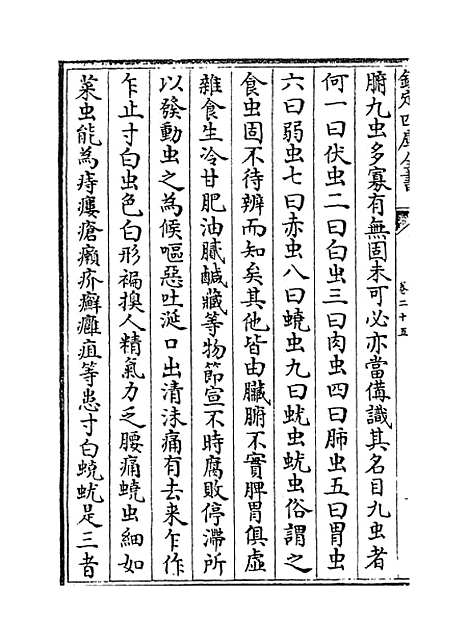 欽定四庫全書
卷二十五
腑九虫多寡有無固未可必亦當備識其名目九虫者
何一曰伏虫二曰白虫三曰肉虫四曰肺虫五曰胃虫
六曰弱虫七曰赤虫八曰蟯虫九曰蚘虫蚘虫俗謂之
食虫固不待辨而知矣其他皆由臟腑不實脾胃俱虛
雜食生冷甘肥油膩鹹藏等物節宣不時腐敗停滯所
以發動虫之為候嘔惡吐涎口出清沫痛有去来乍作
乍止寸白虫色白形褊損人精氣力乏腰痛蟯虫細如
菜虫能為痔瘻瘡癩疥癬癰疽等患寸白蟯蚘是三者